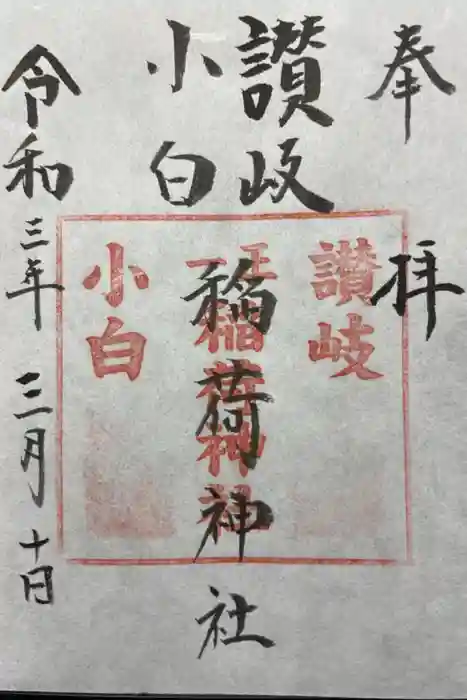 奉拝
讃岐
小白
稲荷神社
令和三年三月十日
讃岐
正一
稲荷神
小白